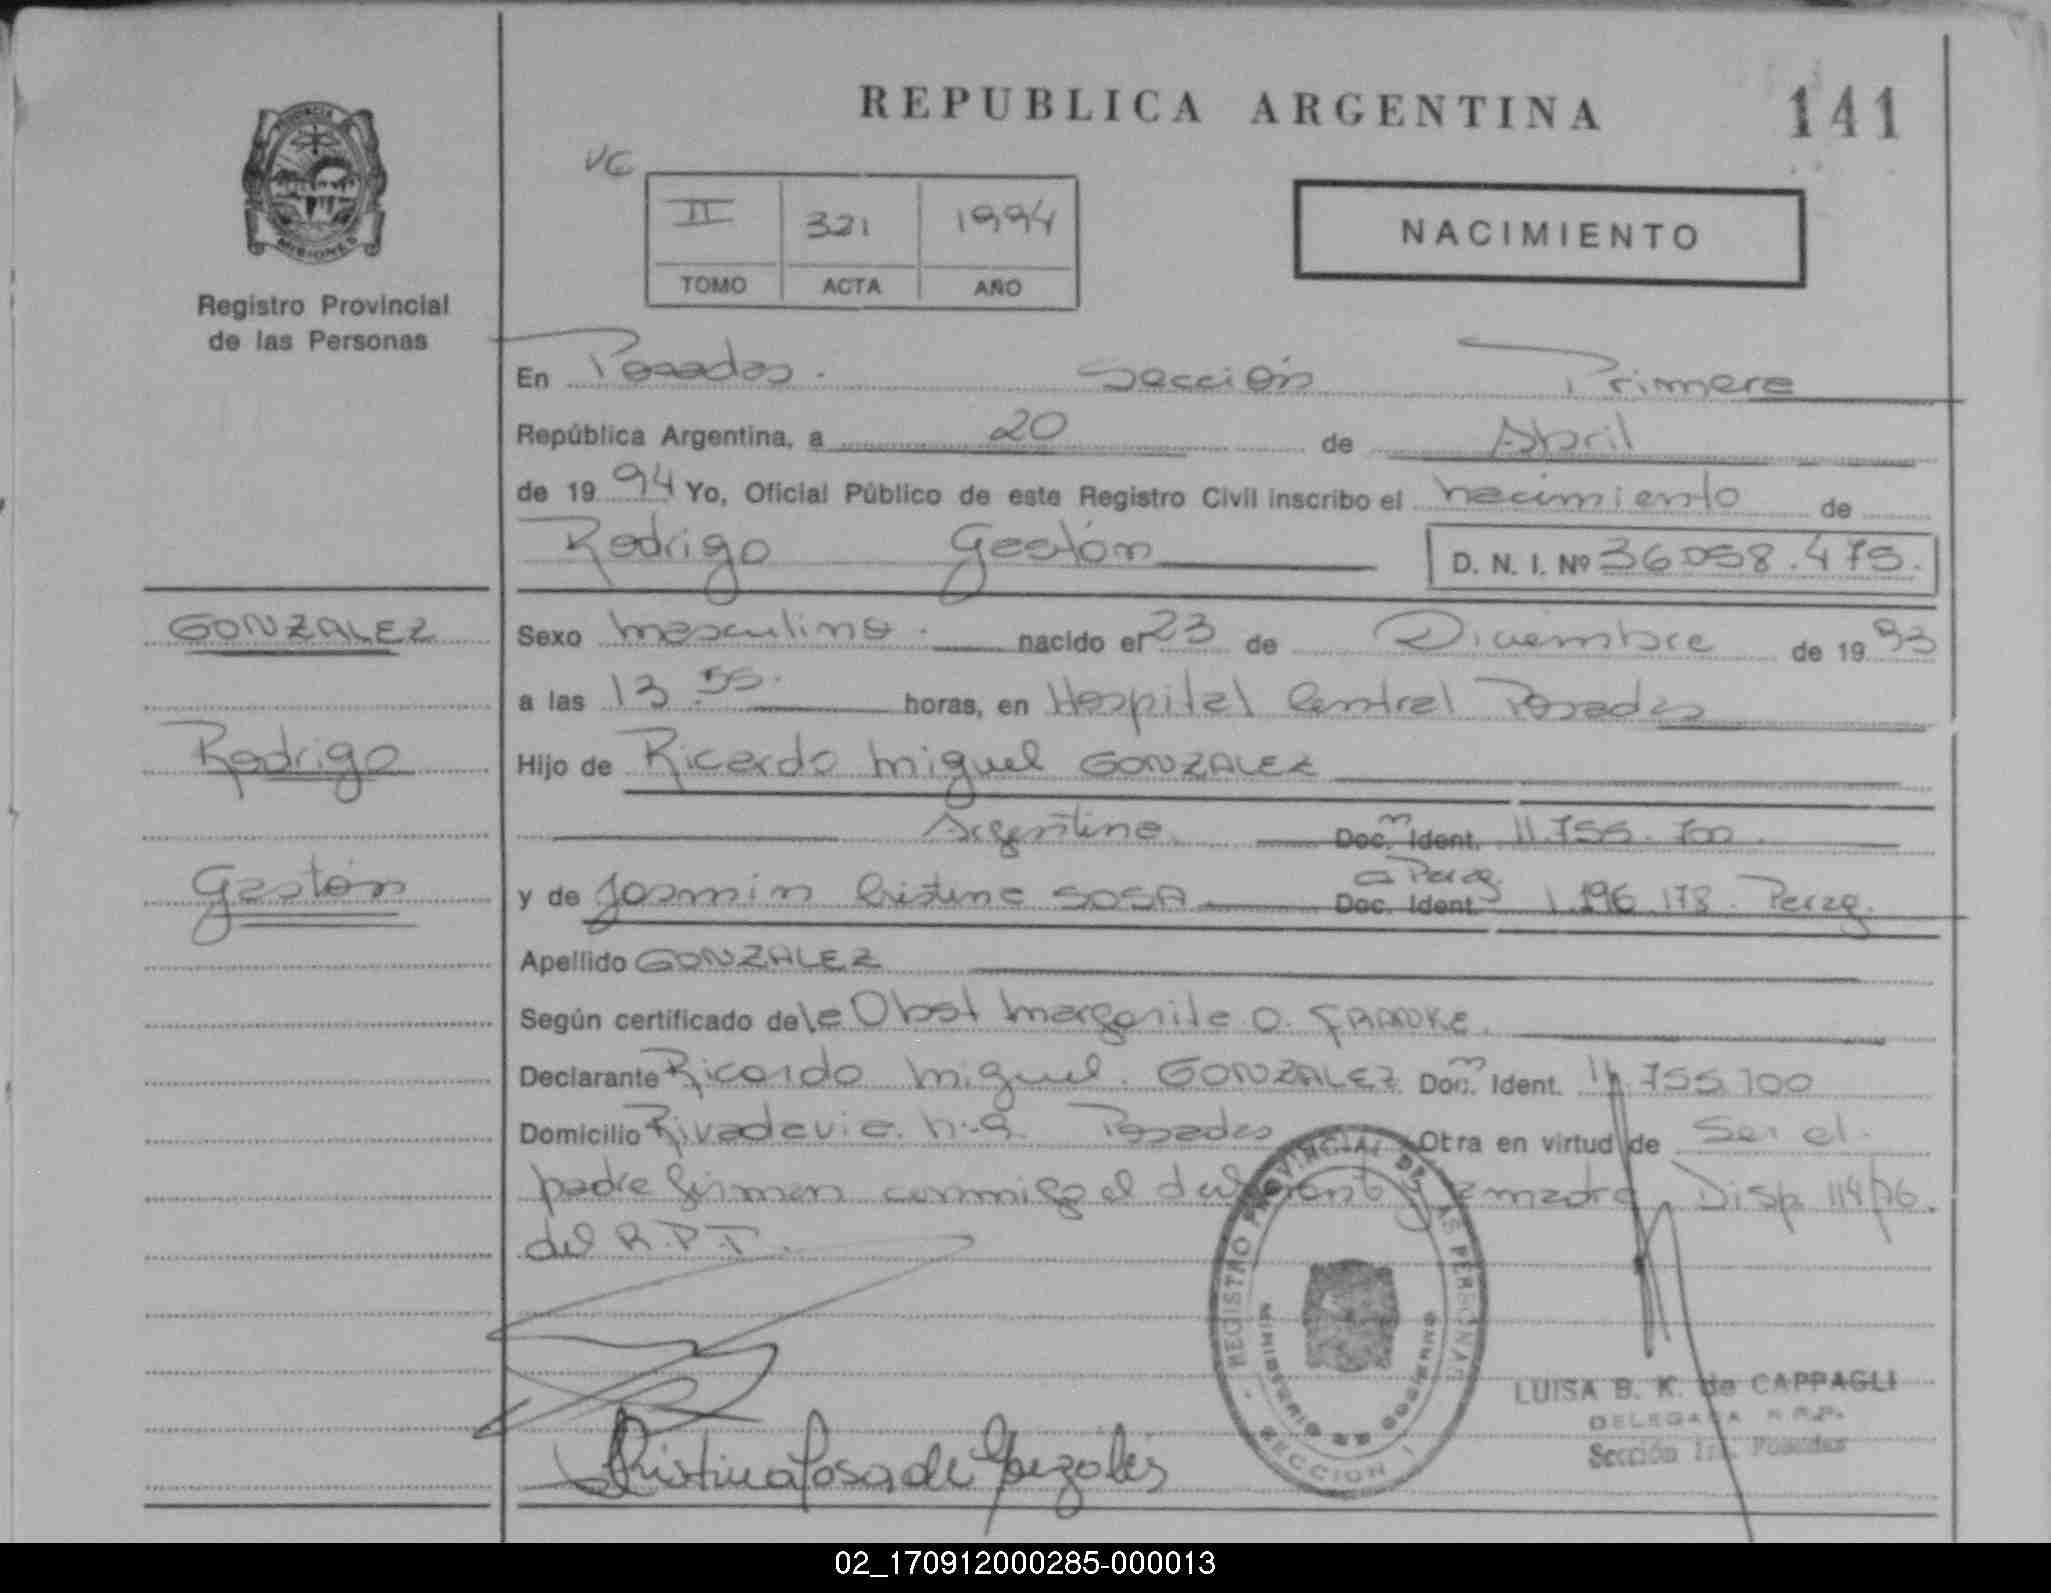 REPUBLICA ARGENTINA
141
MISIONES
Registro Provincial
de las Personas
VG
II 321 1994
TOMO ACTA AÑO
NACIMIENTO
En Posadas. Sección Primera
República Argentina, a 20 de Abril
de 1994 Yo, Oficial Público de este Registro Civil inscribo el nacimiento de
Rodrigo Gastón D. N. I. Nº 36.058.475.
GONZALEZ
Rodrigo
Gastón
Sexo masculino. nacido el 23 de Diciembre de 1993
a las 13.55. horas, en Hospital Central Posadas
Hijo de Ricardo Miguel GONZALEZ
Argentino. Doc. Ident. 11.755.700.
y de Cristina SOSA Doc. Ident. 1.196.178. Parag.
Apellido GONZALEZ
Según certificado de la Obst Margarita O. FRANKE.
Declarante Ricardo Miguel. GONZALEZ Doc. Ident. 11.755.700
Domicilio Rivadavia Posadas Otra en virtud de Ser el
padre firman conmigo el y madre Disp. 114/76.
del R.P.T.
REGISTRO PROVINCIAL DE LAS PERSONAS
MINISTERIO DE GOBIERNO
SECCION I
LUISA B. K. de CAPPAGLI
DELEGADA R.R.P.
Sección 1ra. Posadas
Cristina Sosa de González
02_170912000285-000013